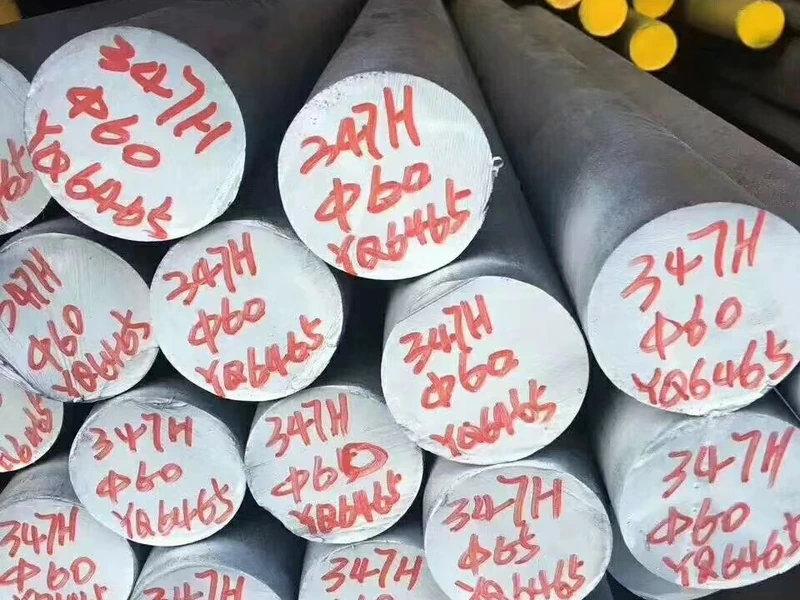 347H
Φ60
YQ6465
347H
Φ60
YQ6465
65
347H
Φ60
YQ6465
347H
Φ60
YQ6465
347H
Φ60
YQ6465
347H
Φ60
YQ6465
347H
Φ60
YQ6465
347H
Φ60
YQ6465
347H
Φ60
YQ6465
Q6465
347H
Φ65
YQ6465
347H
Φ60
347H
347H